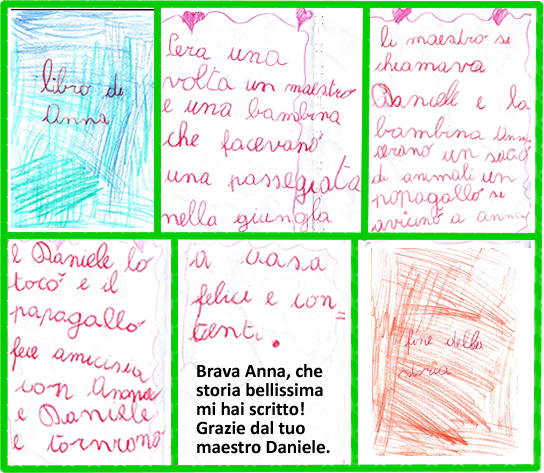 libro di
Anna
C'era una
volta un maestro
e una bambina
che facevano
una passegiata
nella giungla
li maestro si
chiamava
Daniele e la
bambina Anna
cerano un saco
di animali un
popagallo si
avicinò a anna
e Daniele lo
tocò e il
papagallo
fece amicisia
con Anna
e Daniele
e tornrono
a casa
felici e con=
tenti.
Brava Anna, che
storia bellissima
mi hai scritto!
Grazie dal tuo
maestro Daniele.
fine della
storia